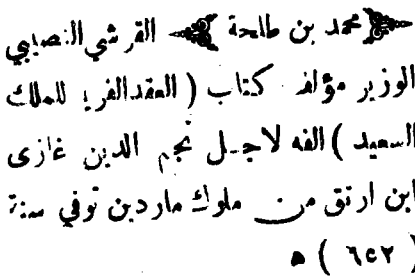 ﴿محمد بن طلحة﴾ القرشي النصيبي
الوزير مؤلف كتاب ( العقد الفريد للملك
السعيد ) الفه لاجل نجم الدين غازى
ابن ارتق من ملوك ماردين توفي سنة
( ٦٥٢ ) ه